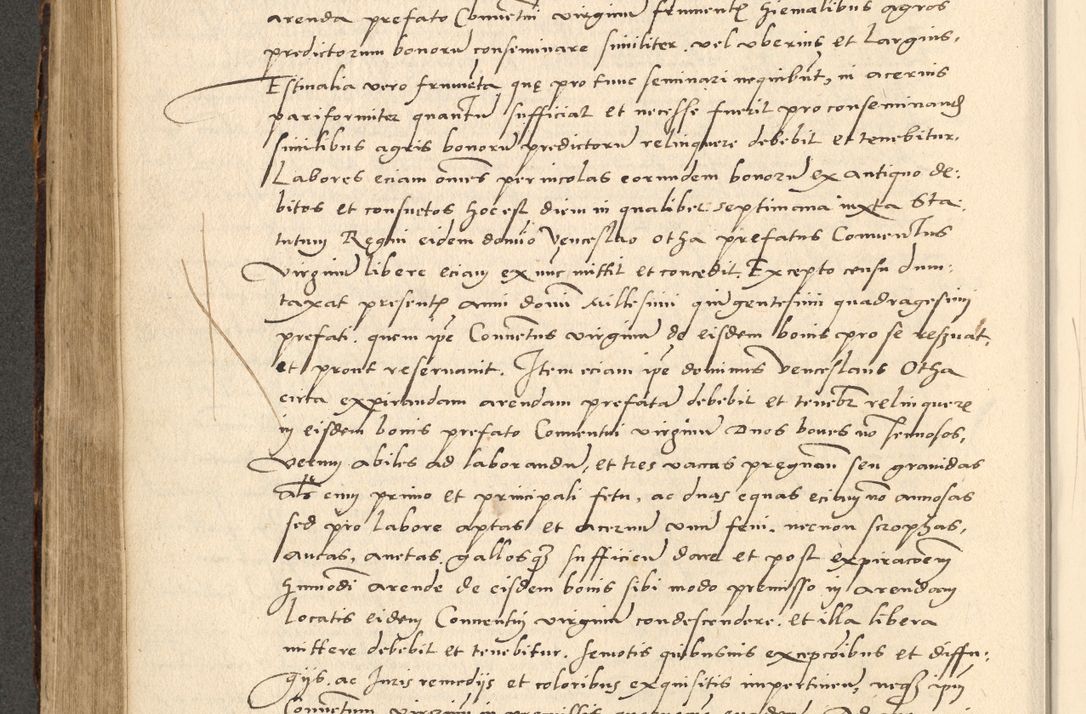 arenda prefato Conuentui virginum frumentis hiemalibus agros
predictorum bonorum conseminare similiter, vel vberius et largius.
Estiualia vero frumenta que pro tunc seminari nequibunt, in aceruis
pariformiter quantum sufficiat et necesse fuerit pro conseminandis
similibus agris bonorum predictorum relinquere debebit et tenebitur.
Labores eciam omnes per incolas eorundem bonorum ex antiquo de:
bitos et consuetos hoc est diem in qualibet septimana iuxta Sta:
tutum Regni eidem domino Venceslao Otha prefatus Conuentus
virginum libere eciam ex nunc mittit et concedit, Excepto censu dum:
taxat presentis anni domini Millesimi quingentesimi quadragesimi
prefati. quem ipse Conuentus virginum de eisdem bonis pro se reseruat,
et prout reseruauit. Item eciam ipse dominus Venceslaus Otha
circa expirandam arendam prefatam debebit et tenebitur relinquere
in eisdem bonis prefato Conuentui virginum Duos boues non
verum abiles ad laborandum, et tres vaccas pregnantes seu grauidas
als cum primo et principali fetu, ac duas equas eciam non annosas
sed pro labore aptas et aceruum vnum feni. necnon scrophas,
aucas, anetas, gallosque sufficien dare et post expiracionem
huiusmodi arende de eisdem bonis sibi modo premisso in arendam
locatis eidem Conuentui virginum condescendere, et illa libera
mittere debebit et tenebitur. semotis quibusuis excepcionibus et diffu:
giis, ac Iuris remediis et coloribus exquisitis impertinen, neque ipsum
Conuentum virginum in premissis